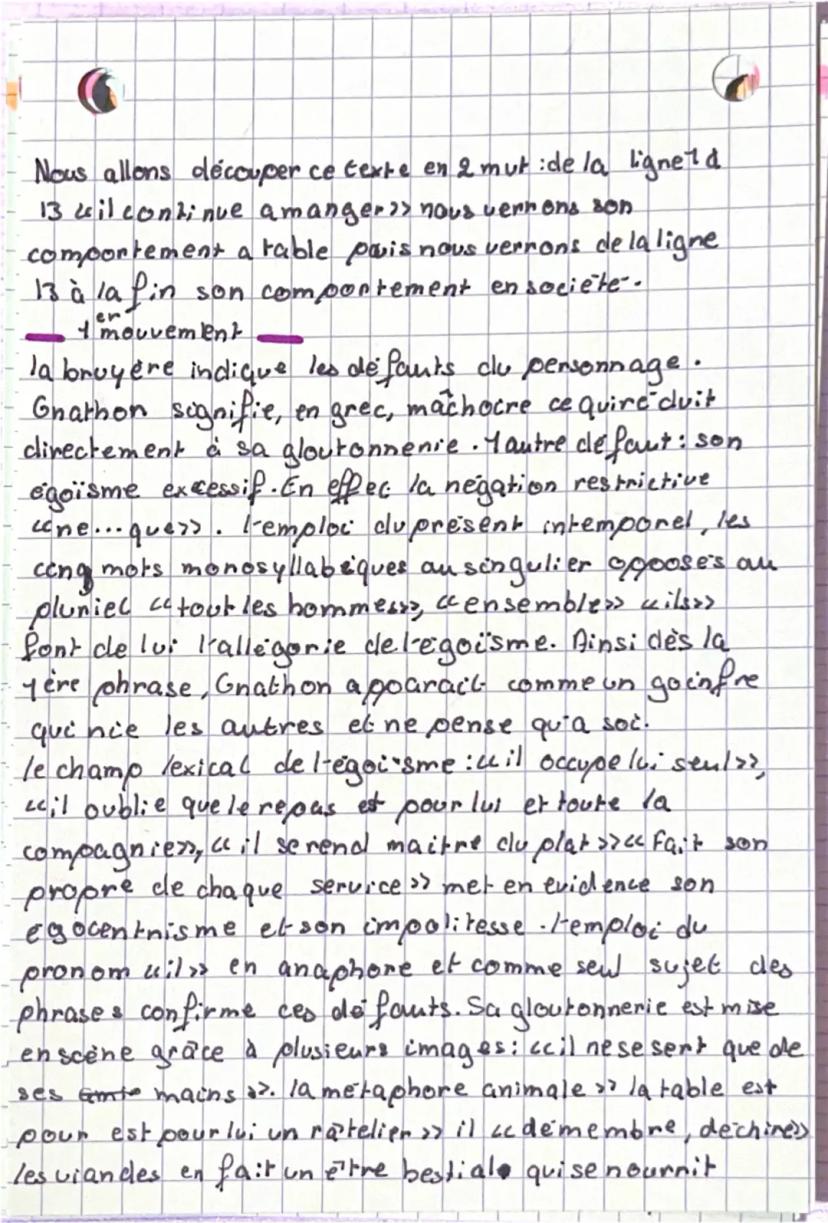 Nous allons découper ce texte en 2 mvt : de la ligne 1 à
13 «il continue a manger» nous verrons son
comportement a table puis nous verrons de la ligne
13 à la fin son comportement en société.
1er mouvement
la bruyère indique les défauts du personnage.
Gnathon signifie, en grec, mâchoire ce qui réduit
directement à sa gloutonnerie. 1 autre défaut : son
égoïsme excessif. En effec la négation restrictive
«ne...que». l'emploi du présent intemporel, les
cinq mots monosyllabiques au singulier opposés au
pluriel «tout les hommes», «ensemble» «ils»
font de lui l'allégorie de l'égoïsme. Ainsi dès la
1ère phrase, Gnathon apparait comme un goinfre
qui nie les autres et ne pense qu'a soi.
le champ lexical de l'égoïsme : «il occupe lui seul»,
«il oublie que le repas est pour lui et toute la
compagnie», «il se rend maitre du plat» «fait son
propre de chaque service» met en evidence son
égocentrisme et son impolitesse. l'emploi du
pronom «il» en anaphore et comme seul sujet des
phrases confirme ces défauts. Sa gloutonnerie est mise
en scène grâce à plusieurs images : «il ne se sert que de
ses mains». la métaphore animale » la table est
pour est pour lui un râtelier» il «démembre, déchire»
les viandes en fait un être bestial qui se nourrit